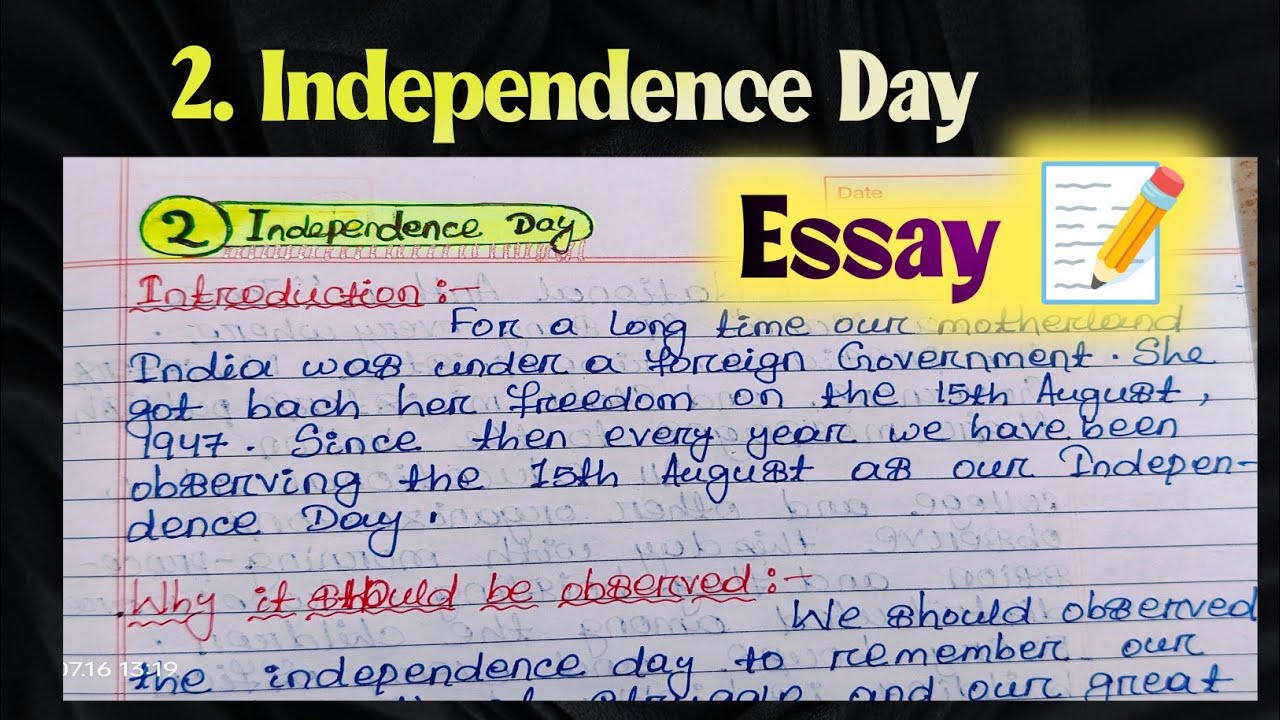 2. Independence Day
Essay
Date
2 Independence Day
Introduction:-
For a long time our motherland
India was under a foreign Government. She
got bach her freedom on the 15th August,
1947. Since then every year we have been
observing the 15th August as our Indepen-
dence Day.
Why it should be observed:-
We should observed
the independence day to remember our
struggle and our great
07.16 13:19